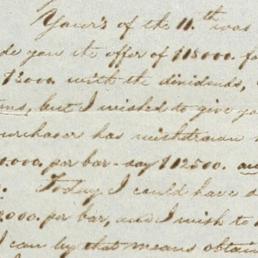 Yours of the 11.th was
de you the offer of $13000. fo
$2000. with the dividends,
but I wished to give yo
urchaser has withdrawn
,000. per bar - say $12500. an
Today I could have d
,000. per bar, and I wish to
I can by that means obtain